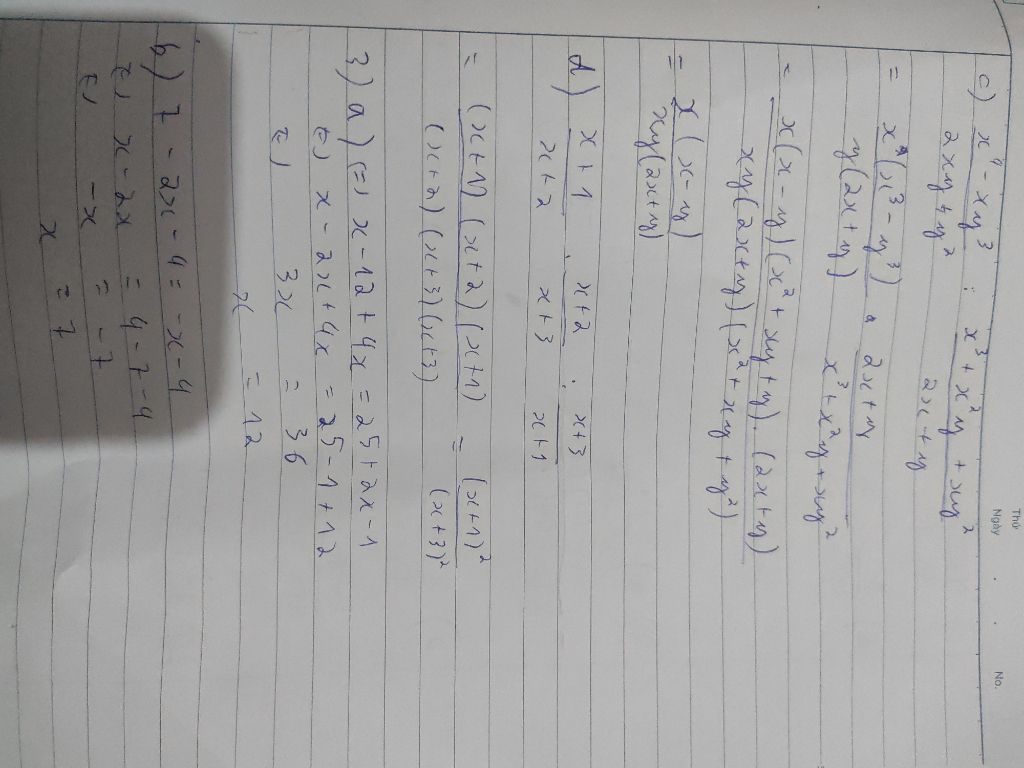 Thứ
Ngày . . No.
c) x⁴ - xy³ : x³ + x²y + xy²
2xy + y² 2x + y
= x(x³ - y³) . 2x + y
y(2x + y) x³ + x²y + xy²
= x(x - y)(x² + xy + y) . (2x + y)
xy(2x + y)(x² + xy + y²)
= x(x - y)
xy(2x + y)
d) x + 1 . x + 2 : x + 3
x + 2 x + 3 x + 1
= (x + 1)(x + 2)(x + 1) = (x + 1)²
(x + 2)(x + 3)(x + 3) (x + 3)²
3) a) (=) x - 12 + 4x = 25 + 2x - 1
(=) x - 2x + 4x = 25 - 1 + 12
(=) 3x = 36
x = 12
b) 7 - 2x - 4 = -x - 4
(=) x - 2x = 4 - 7 - 4
(=) -x = -7
x = 7